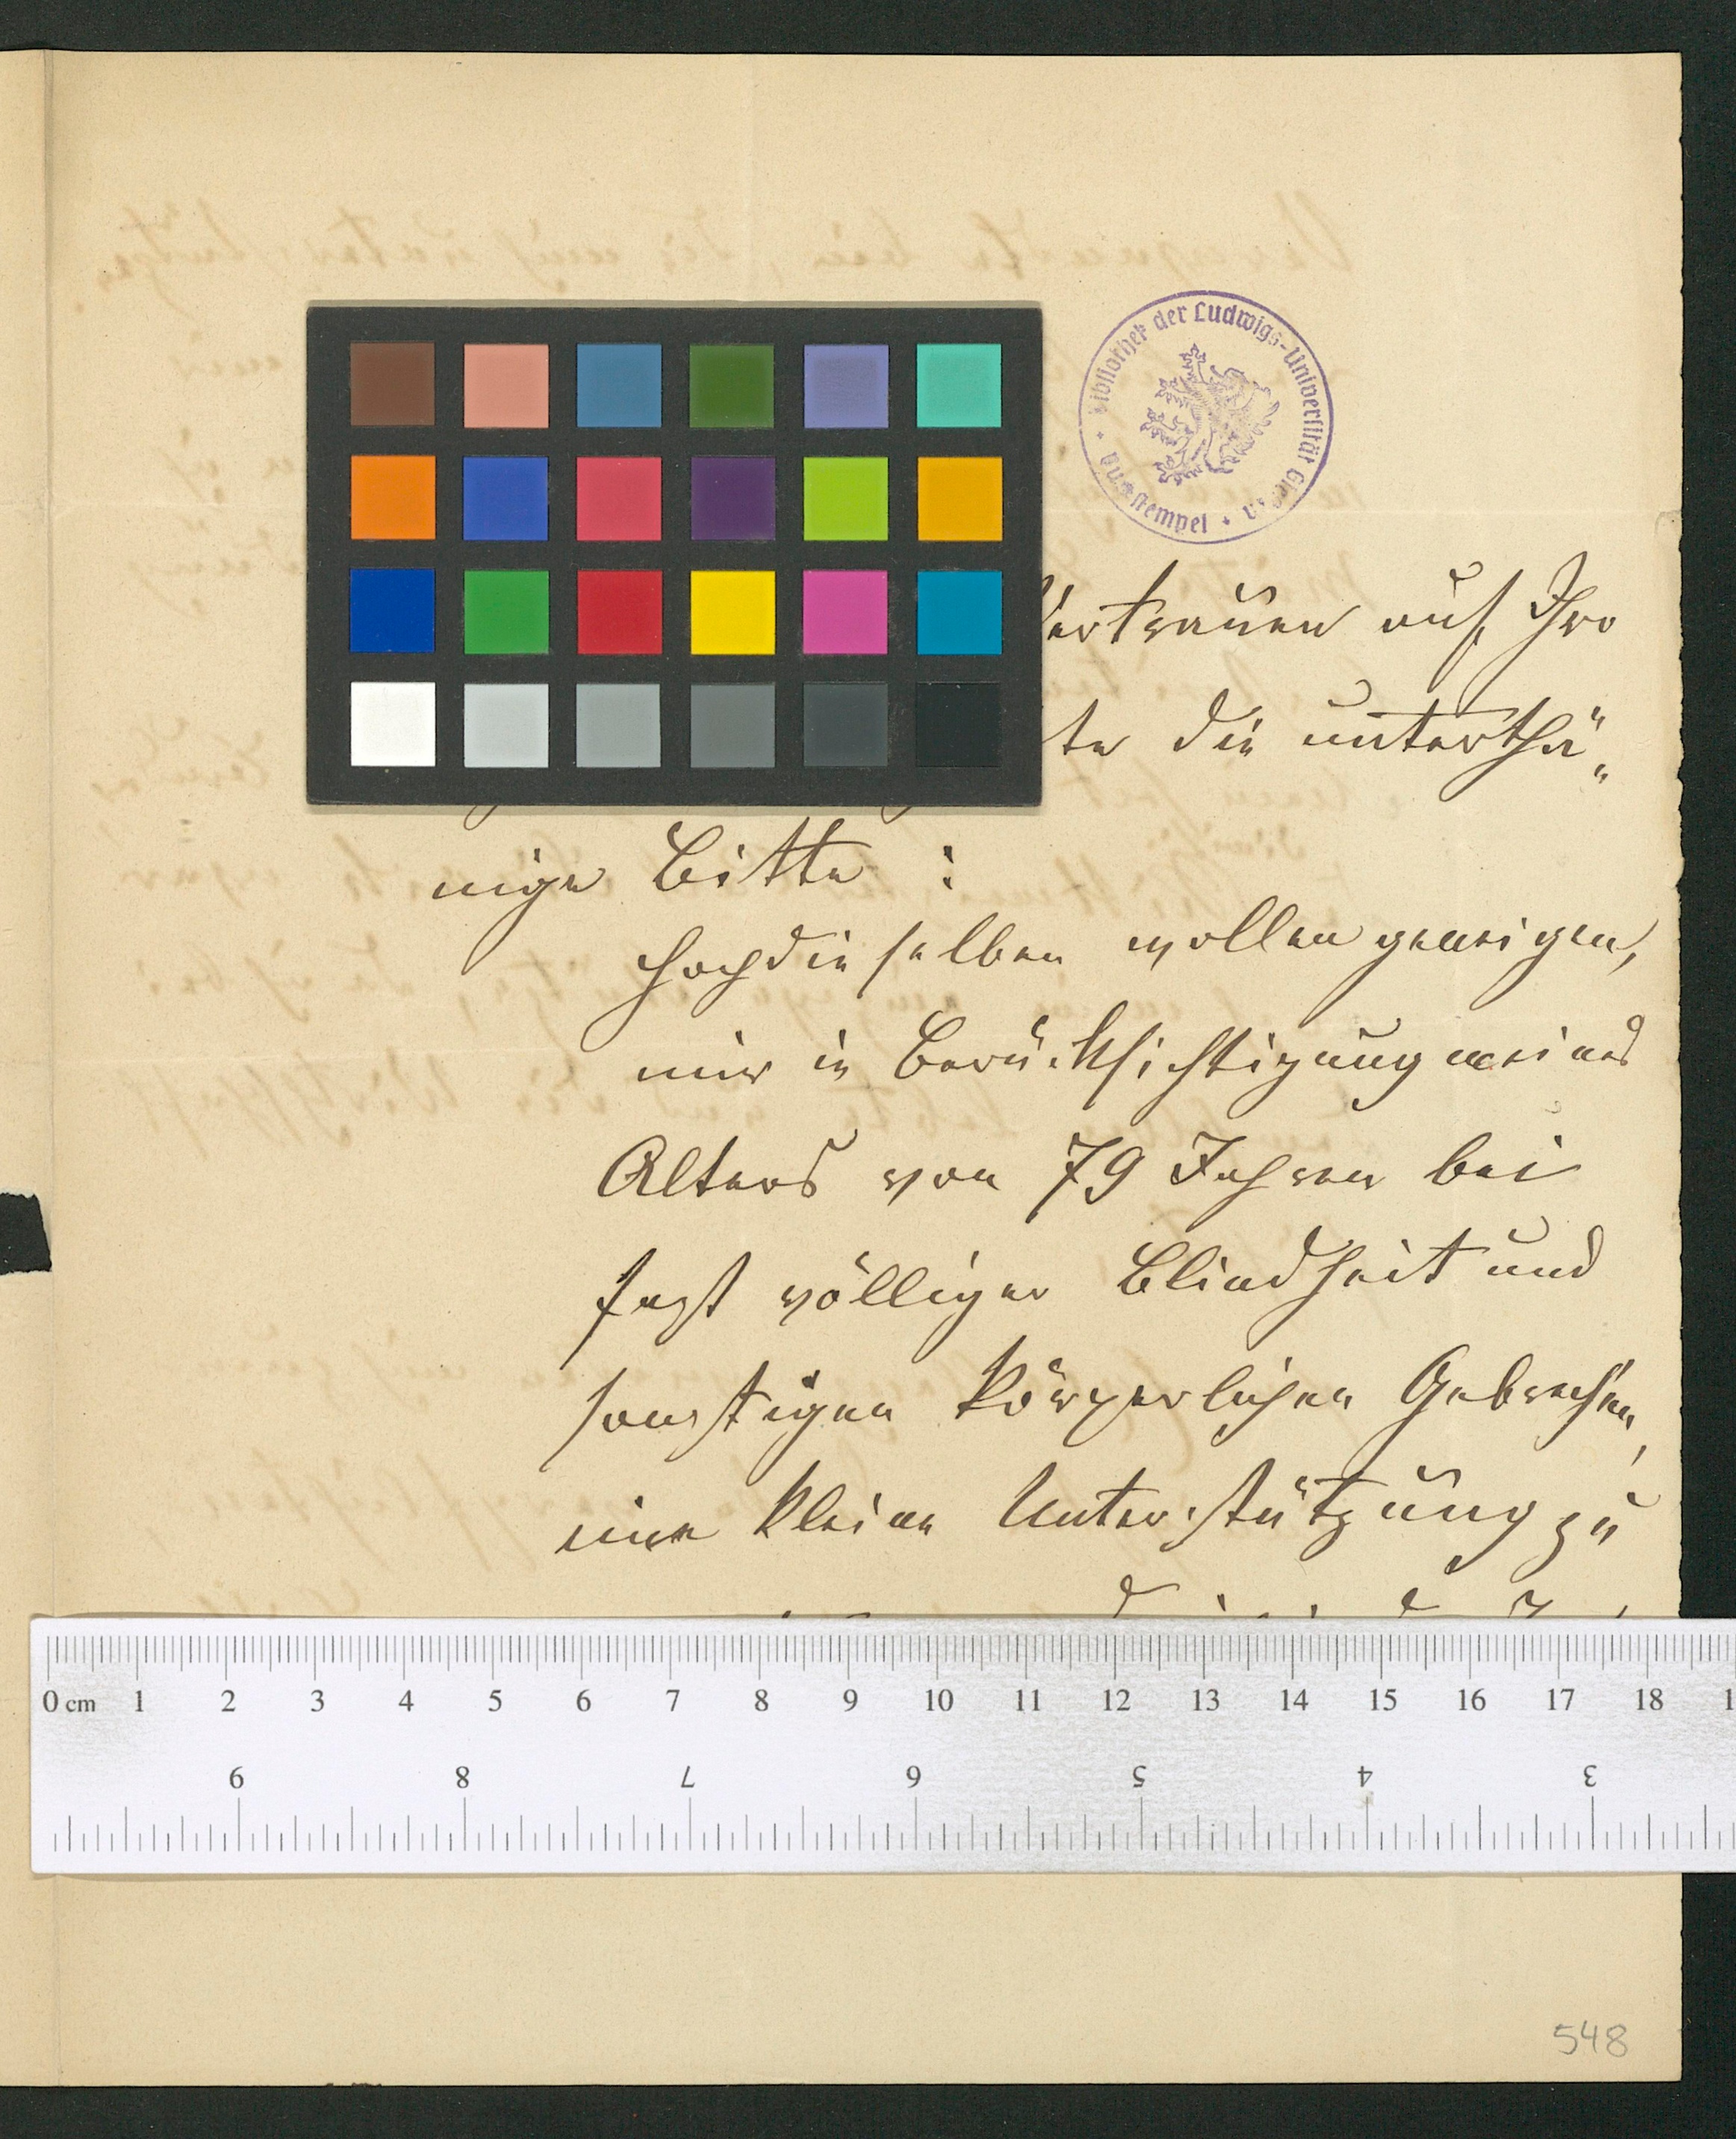 Bibliothek der Ludwigs-Universität Gießen
Vertrauen auf Ihro
te die unterthä„
nige Bitte :
Hochdieselben wollen geneigen,
mir in Berücksichtigung meines
Alters von 79 Jahren bei
fast völliger Blindheit und
sonstigen körperlichen Gebrechen,
eine kleine Unterstützung zu
0 cm 1 2 3 4 5 6 7 8 9 10 11 12 13 14 15 16 17 18
9 8 7 6 5 4 3
548